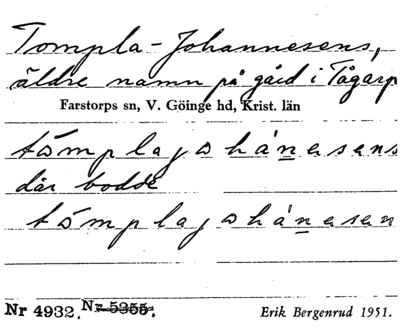 Tompla-Johannesens,
äldre namn på gård i Tågarp
Farstorps sn, V. Göinge hd, Krist. län
tòmplajohánesens
där bodde
tòmplajohánesen
Nr 4932. Nr 5355.
Erik Bergenrud 1951.